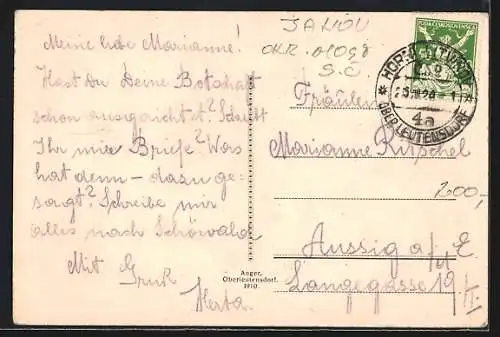 Meine liebe Marianne!
Hast Du Deine Botschaft
schon ausgericht�t? Schreibt
Ihr mir Briefe? Was
hat denn – dazu ge-
sagt? Schreibe mir
alles nach Schönwald
Mit Gruß
Herta
Anger,
Oberleutensdorf.
1910
JANOV
OKR. MOST
S.Č.
HORNÍ LITVÍNOV
4a
OBER LEUTENSDORF
Fräulein
Marianne Kirschel
200,-
Aussig a/d E.
Langegasse 19/II.